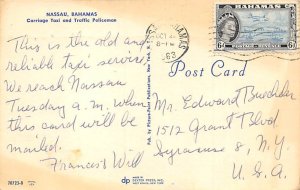 NASSAU, BAHAMAS
Carriage Taxi and Traffic Policeman
This is the old and
reliable taxi service.
We reach Nassau
Tuesday a.m. when
this card will be
mailed.
Frances Will
BAHAMAS
6d
6d
8-PM
Post Card
Mr. Edward Buechler
1512 Grant Blvd
Syracuse 8, N.Y.
U.S.A.
dp
DEXTER PRESS, INC.
WEST NYACK, NEW YORK
70723-B